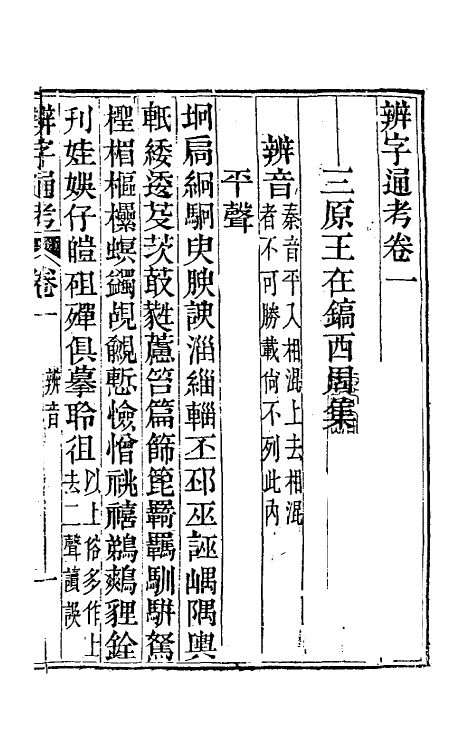 辨字通考卷一
三原王在鎬西周集
辨音秦音平入相混上去相混
者不可勝載倘不列此內
平聲
坰扃絅駉㬰腴諛淄緇輜丕邳巫誣嵎隅輿
軝緌逶芟茨鼓蕤蘆笞篇篩箆羇羈馴駢駑
樫楣樞欙螟鐲覘覦慙憸憎祧禧鵜鷀貍銓
刋娃娛仔皚砠殫俱摹聆徂以上俗多作上
去二聲讀誤
辨字通考 卷一 辨音 一